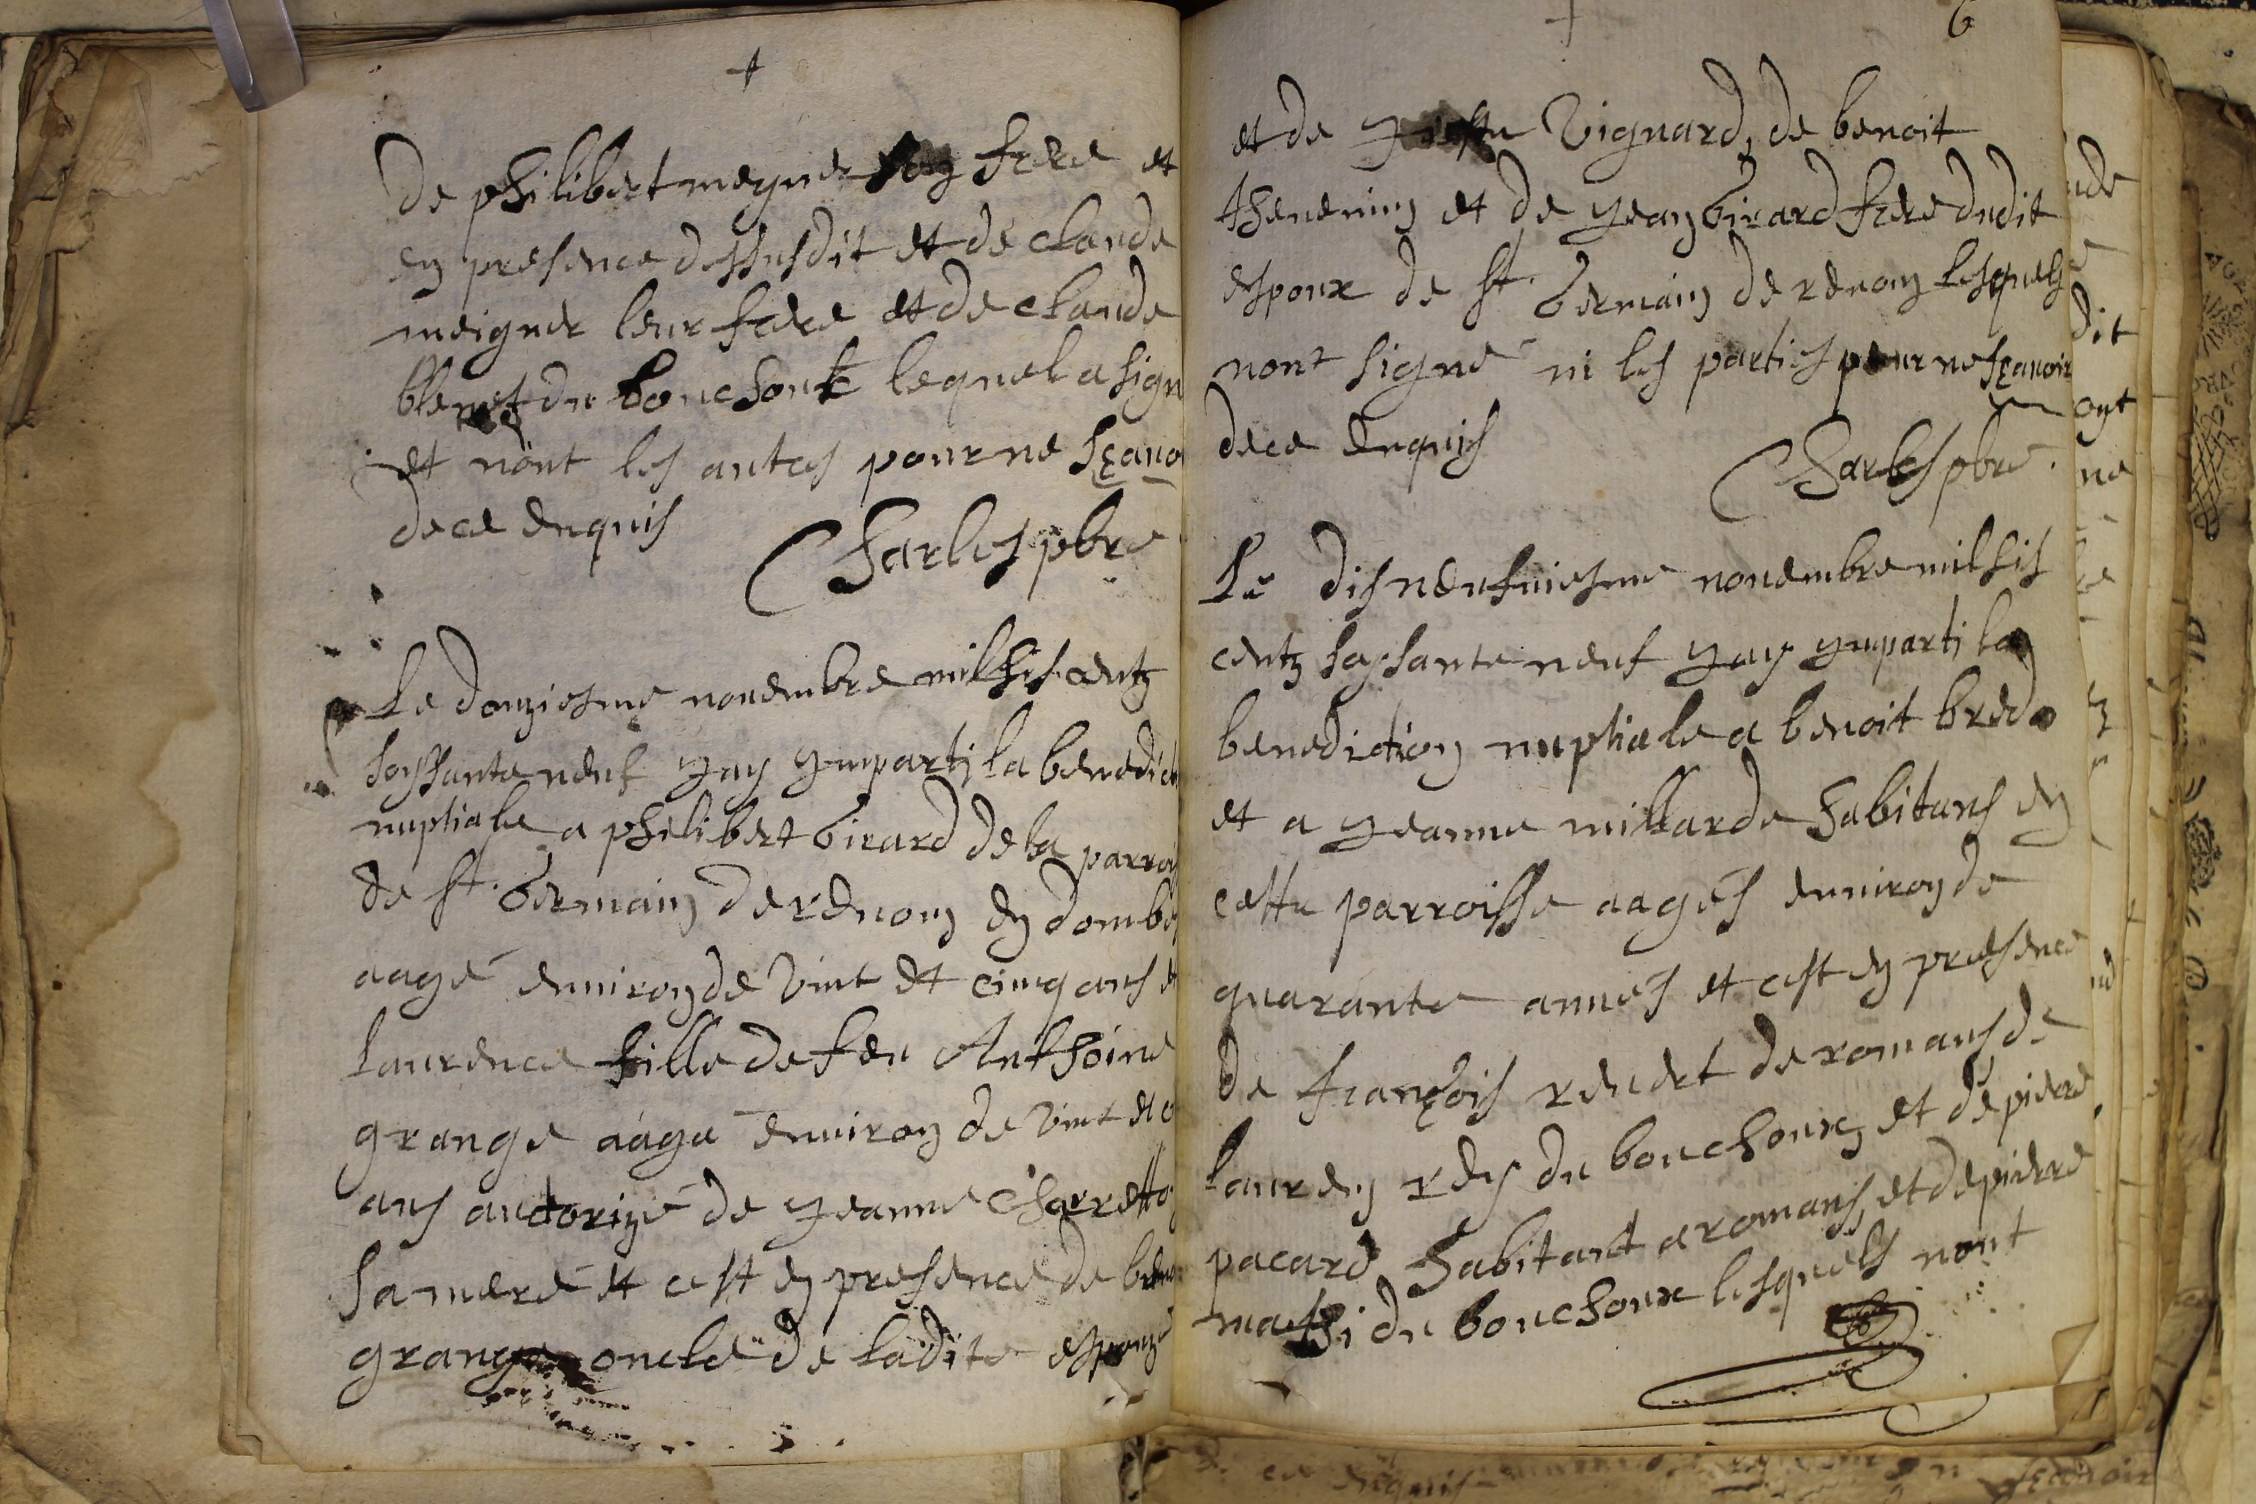 de philibert meyner son frere et
en presence dessusdit et de claude
meigner leur frere et de claude
du bouchoux lequel a sign
et nont les autres pour ne sçauo
de ce enquis
Charles pbre
Le douziesme nouembre mil sis centz
soyssante neuf yay ymparti la benedict
nuptiale a philibert Girard de la parrois
de st. Germain de renon en dombe
aagé enuiron de vint et cinq ans et
Laurence fille de feu Anthoine
grange aagé enuiron de vint et
ans auctorizé de yeanne Charretto
sa mere et cest en presence de beno
grange oncle de ladite espouze
6
et de Vignard, de benoit
thenenin et de yean Girard frere dudit
espoux de st. Germain de renon lesquels
nont signé ni les parties pour ne sçauoir
de ce enquis
Charles pbre.
Le disneufuiesme nouembre mil sis
centz soyssante neuf yay ymparti la
benediction nuptiale a benoit bredo
et a yeanne millarde habitans en
cette parroisse aagés enuiron de
quarante annés et cest en presence
de françois renert de romans de
lauren rey du bouchoux, et de pierre
pacard habitant a romans, et de pierre
mathi du bouchoux lesquels nont